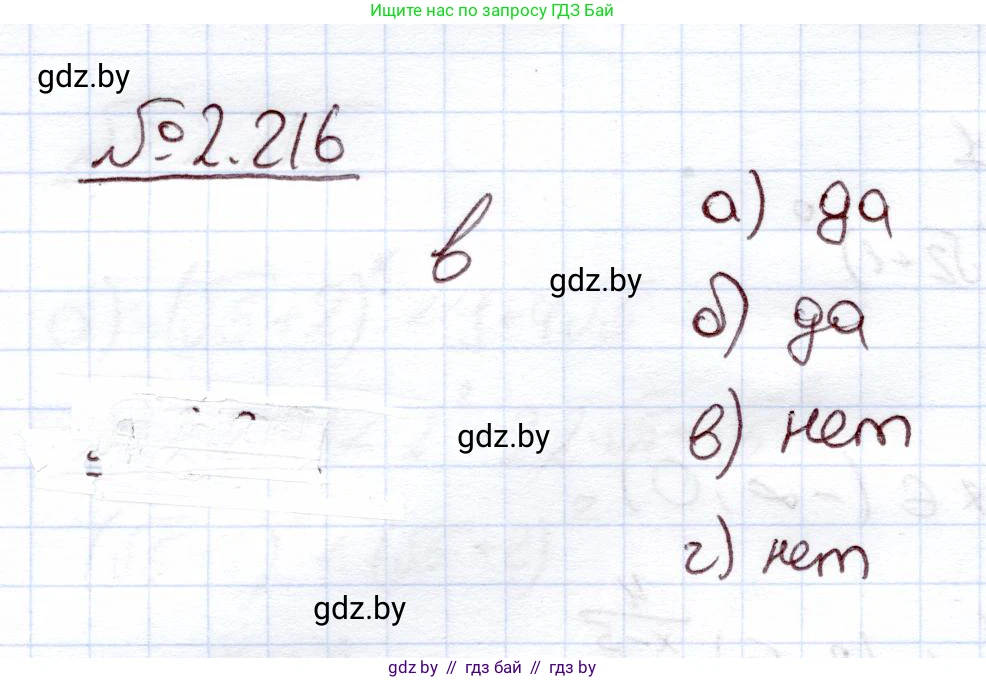 Ищите нас по запросу ГДЗ Бай
gdz.by
№2.216
в
а) да
gdz.by
б) да
gdz.by
в) нет
г) нет
gdz.by
gdz by // гдз бай // гдз by